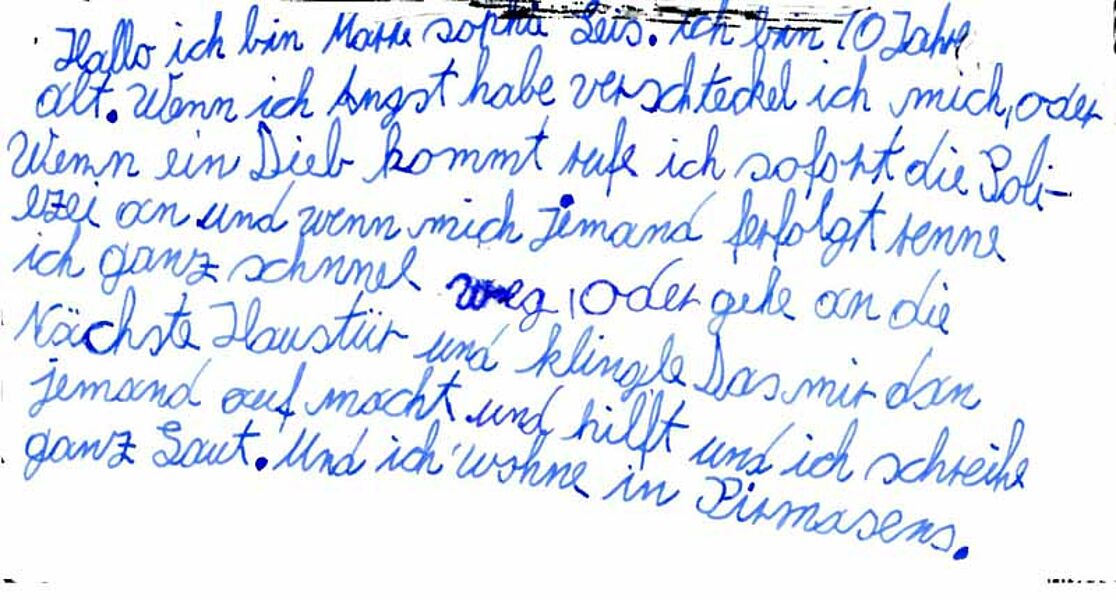 Hallo ich bin Marie sophie Leis. ich bin 10 Jahre
alt. Wenn ich Angst habe verschteckel ich mich, oder
Wenn ein Dieb kommt rufe ich sofort die Poli-
ezei an und wenn mich jemand ferfolgt renne
ich ganz schnnel weg, Oder gehe an die
Nächste Haustür und klingle Das mir dan
jemand auf macht und hilft und ich schreihe
ganz Laut. Und ich wohne in Pirmasens.